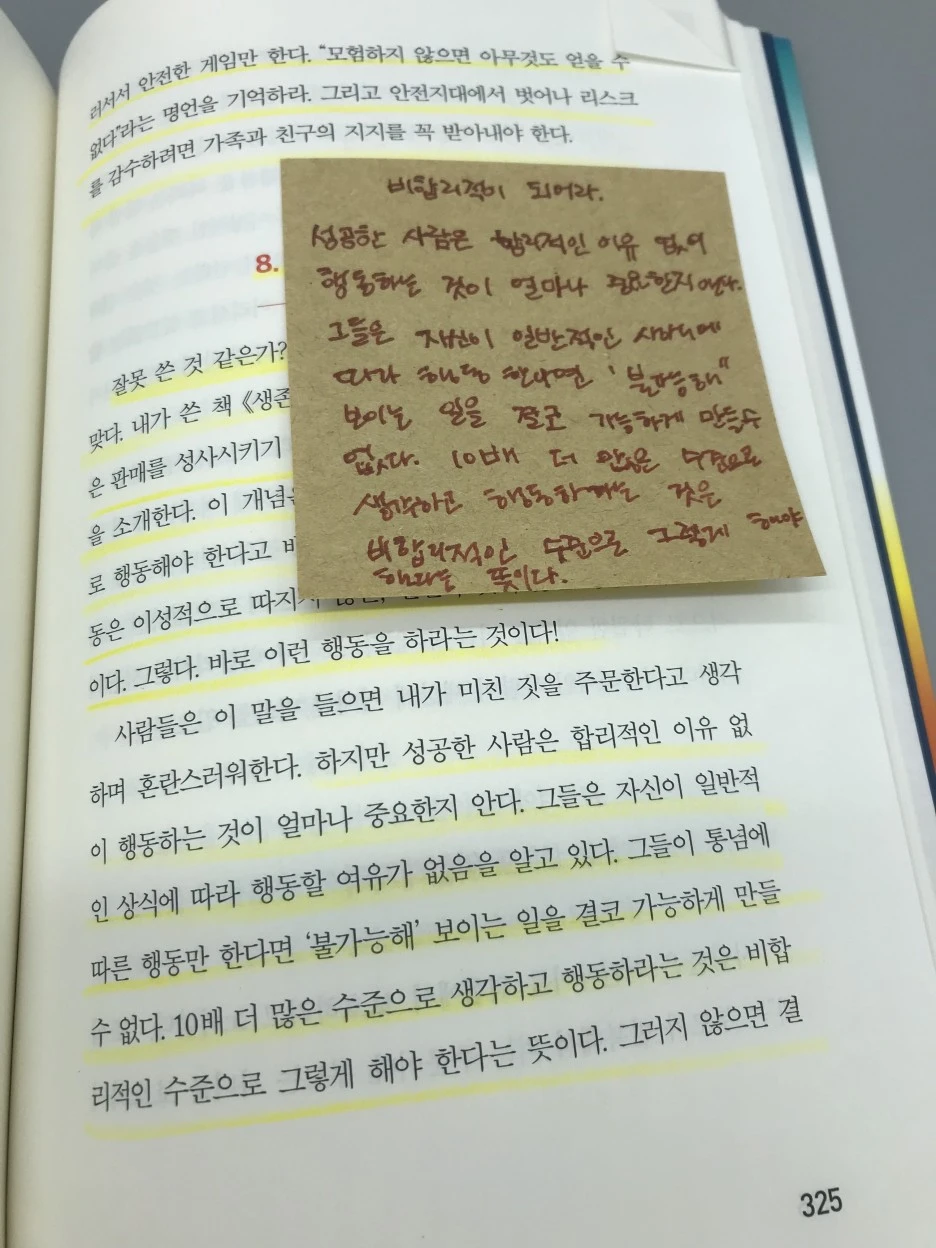 러서서 안전한 게임만 한다. “모험하지 않으면 아무것도 얻을 수
없다”라는 명언을 기억하라. 그리고 안전지대에서 벗어나 리스크
를 감수하려면 가족과 친구의 지지를 꼭 받아내야 한다.
비합리적이 되어라.
성공한 사람은 합리적인 이유 없이
행동하는 것이 얼마나 중요한지 안다.
그들은 자신이 일반적인
따라 한다면 "불가능해"
보이는 일을 결코 가능하게 만들수
없다. 10배 더 많은 수준으로
생각하고 행동하라는 것은
비합리적인 수준으로 그렇게 해야
뜻이다.
8.
잘못 쓴 것 같은가?
맞다. 내가 쓴 책 《생존
은 판매를 성사시키기
을 소개한다. 이 개념
로 행동해야 한다고
동은 이성적으로 따지
이다. 그렇다. 바로 이런 행동을 하라는 것이다!
사람들은 이 말을 들으면 내가 미친 짓을 주문한다고 생각
하며 혼란스러워한다. 하지만 성공한 사람은 합리적인 이유 없
이 행동하는 것이 얼마나 중요한지 안다. 그들은 자신이 일반적
인 상식에 따라 행동할 여유가 없음을 알고 있다. 그들이 통념에
따른 행동만 한다면 ‘불가능해’ 보이는 일을 결코 가능하게 만들
수 없다. 10배 더 많은 수준으로 생각하고 행동하라는 것은 비합
리적인 수준으로 그렇게 해야 한다는 뜻이다. 그러지 않으면 결
325